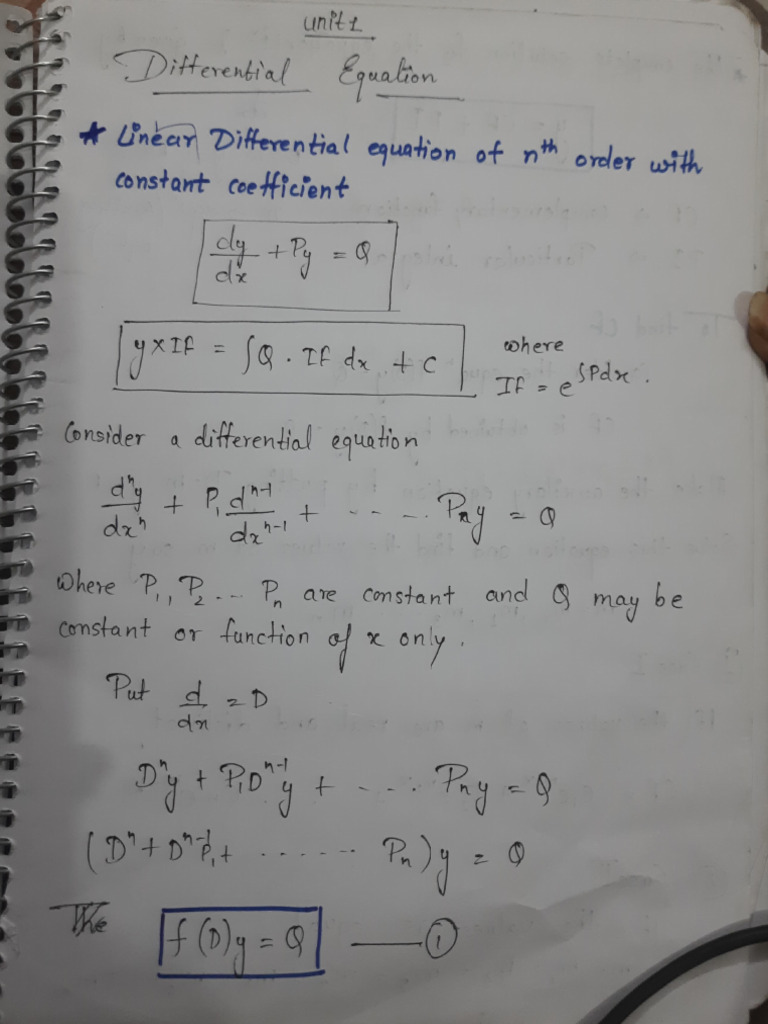 unit 1
Differential Equation
* Linear Differential equation of nth order with
constant coefficient
dy/dx + Py = Q
y×IF = ∫Q . IF dx + c where
IF = e^∫Pdx .
Consider a differential equation
d^n y/dx^n + P₁ d^n-1/dx^n-1 + - - - .. Pₙy = Q
Where P₁, P₂ - - - Pₙ are constant and Q may be
constant or function of x only .
Put d/dx = D
D^n y + P₁D^n-1 y + - - - . Pₙy = Q
(D^n + D^n-1 P₁ + - - - - - - Pₙ)y = Q
The f(D)y = Q —— ①